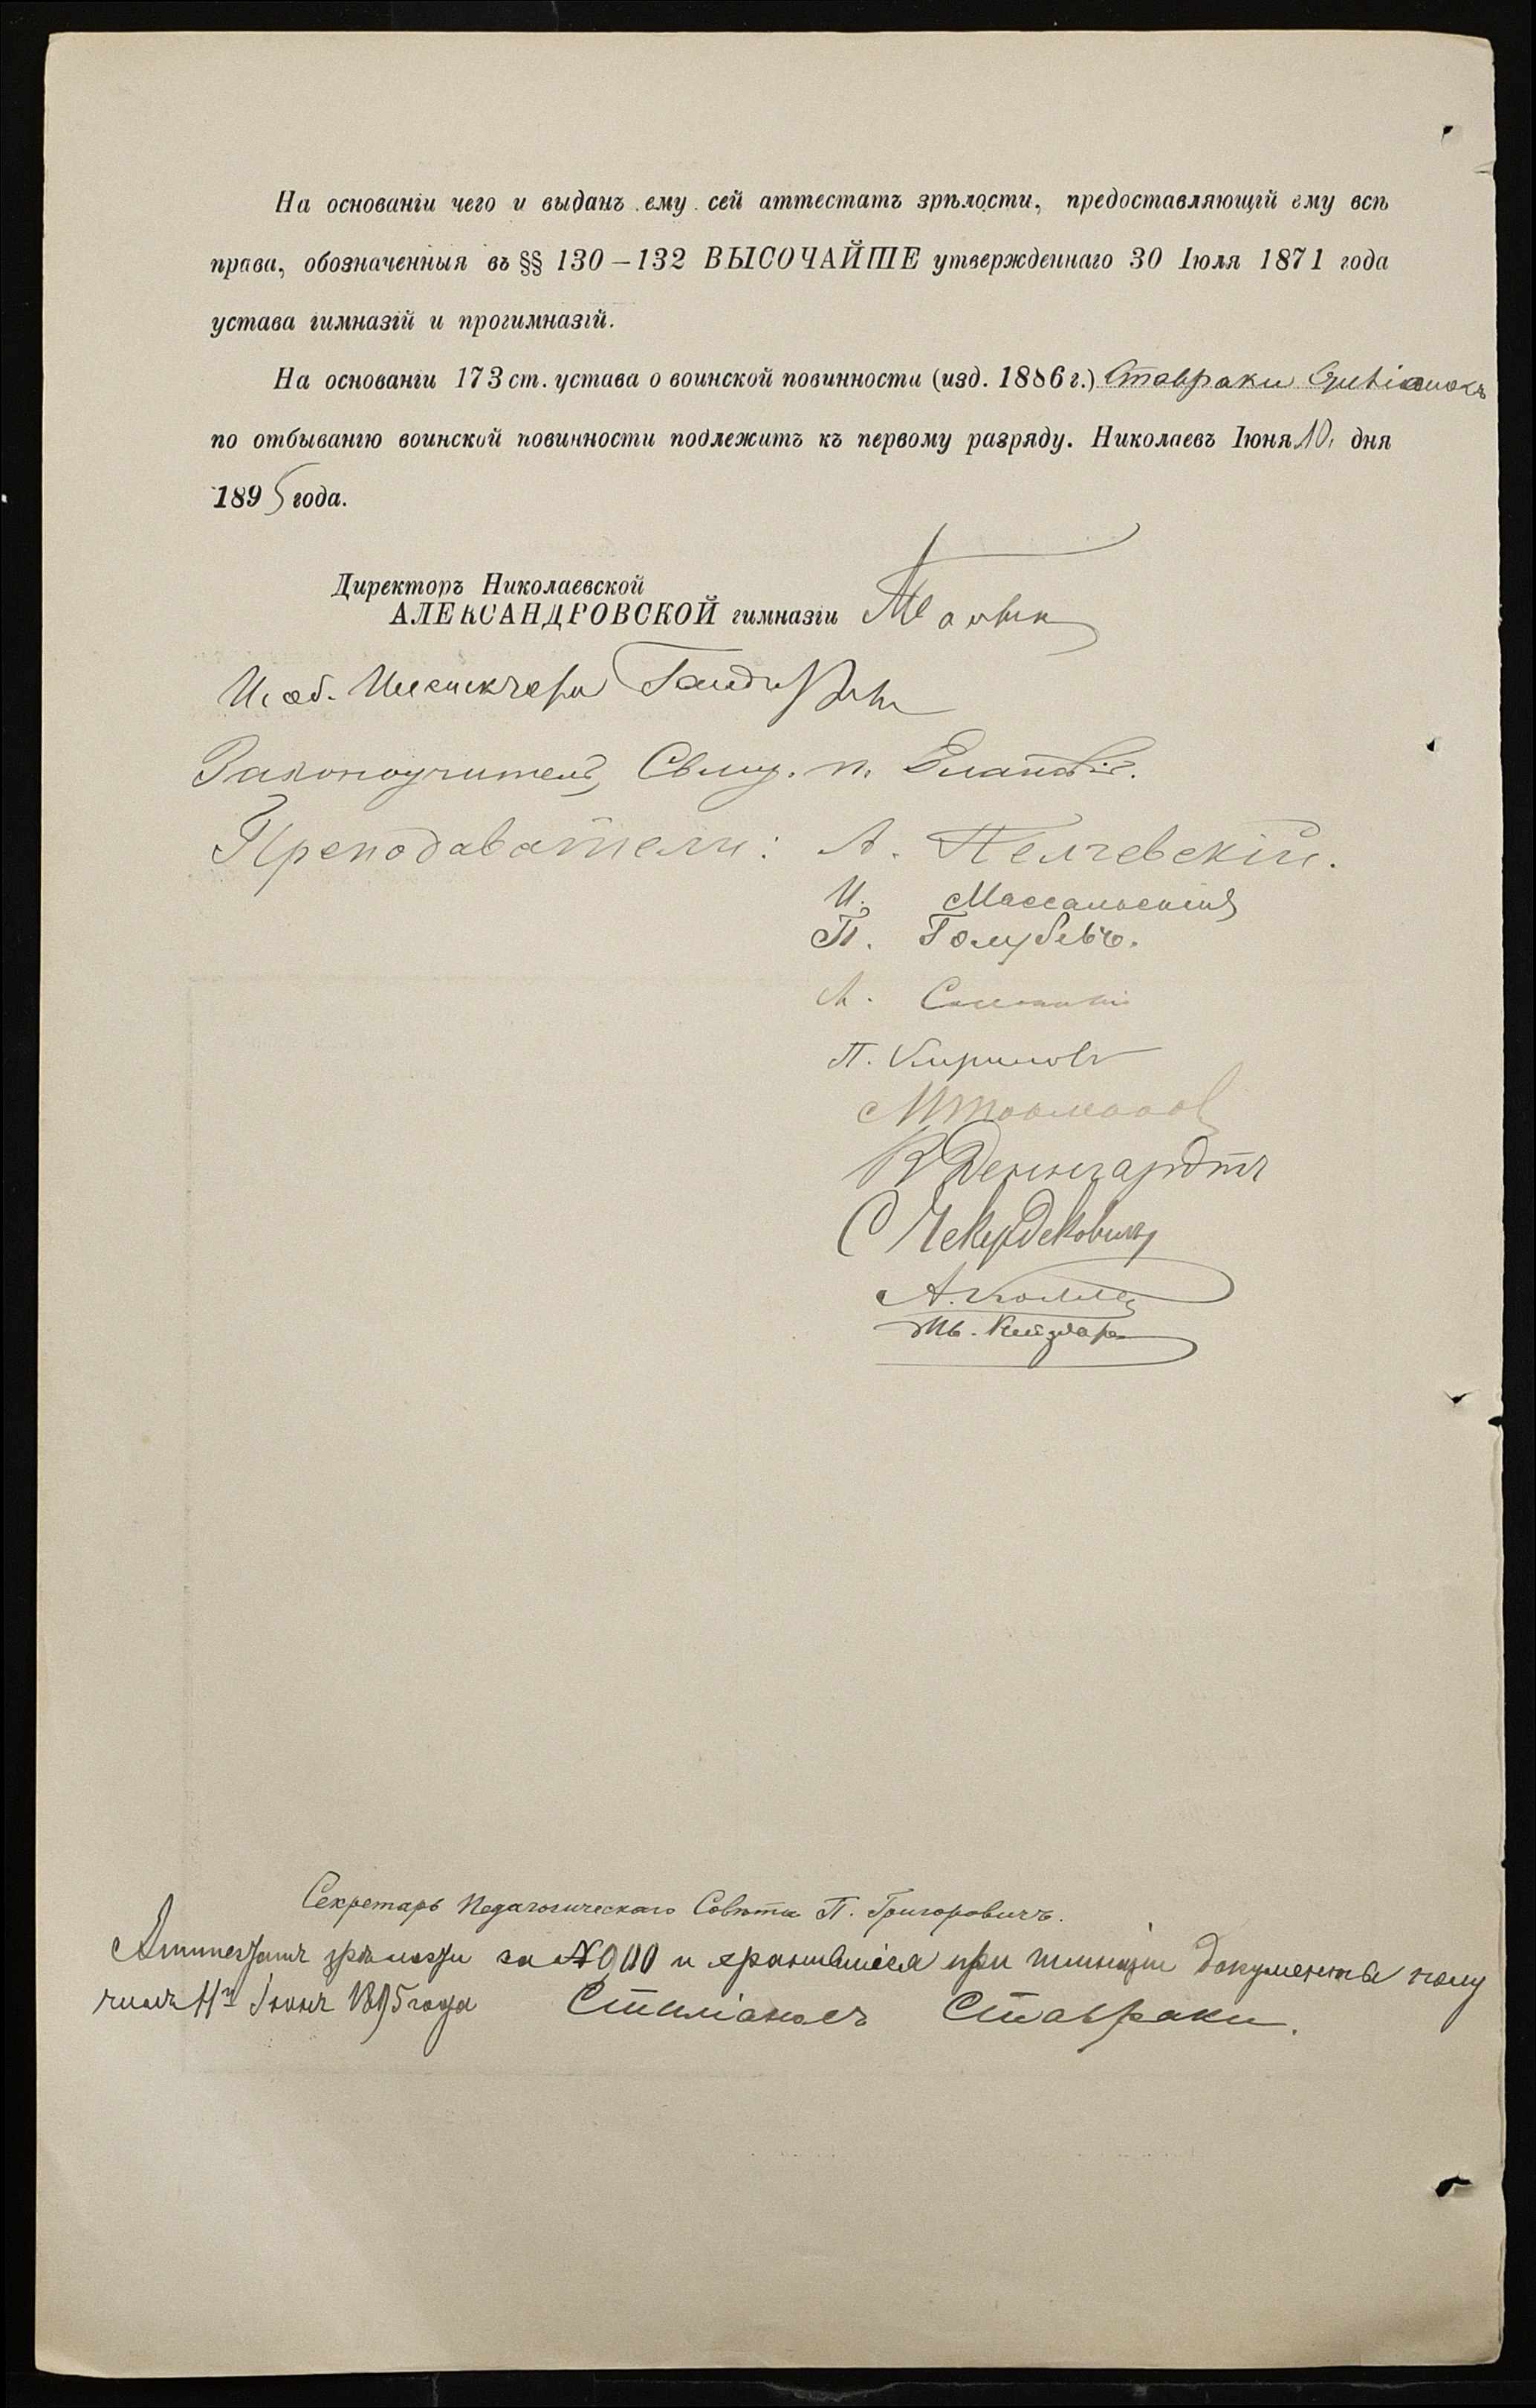 На основаніи чего и выданъ ему сей аттестатъ зрѣлости, предоставляющій ему всѣ
права, обозначенныя въ §§ 130–132 ВЫСОЧАЙШЕ утвержденнаго 30 Іюля 1871 года
устава гимназій и прогимназій.
На основаніи 173 ст. устава о воинской повинности (изд. 1886 г.) Ставраки
по отбыванію воинской повинности подлежитъ къ первому разряду. Николаевъ Іюня 10 дня
1895 года.
Директоръ Николаевской
АЛЕКСАНДРОВСКОЙ гимназіи
Ис. об. Инспектора
Законоучитель, Свящ.
Преподаватели: А. Пелчевскій.
И. Массальскій
П. Голубевъ.
А.
П. Кириловъ
В Деннгардтъ
С
А.
Секретарь Педагогическаго Совѣта П. Григоровичъ.
Аттестатъ зрѣлости за № 900 и хранившіеся при гимназіи документы полу
чилъ 11го Іюня 1895 года Стиліаносъ Ставраки.